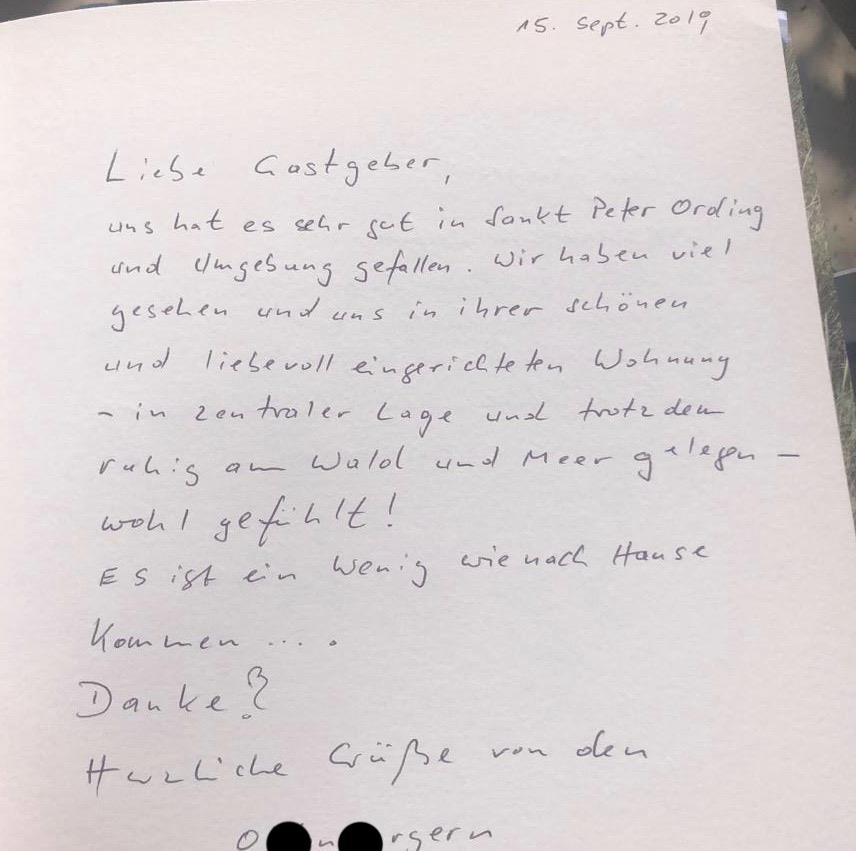 15. Sept. 2019
Liebe Gastgeber,
uns hat es sehr gut in Sankt Peter Ording
und Umgebung gefallen. Wir haben viel
gesehen und uns in ihrer schönen
und liebevoll eingerichteten Wohnung
- in zentraler Lage und trotzdem
ruhig am Wald und Meer gelegen -
wohl gefühlt!
Es ist ein wenig wie nach Hause
kommen ....
Danke!
Herzliche Grüße von den